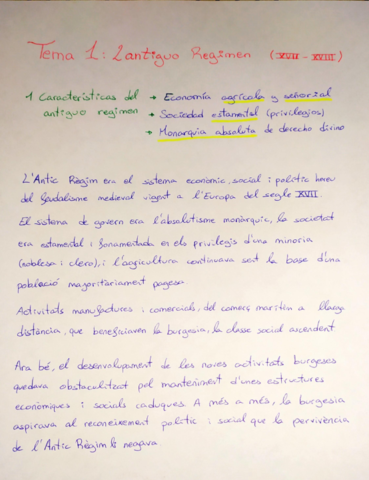 Tema 1: L antiguo Regimen (XVII - XVIII)
1 Características del → Economía agrícola y señorial
antiguo regimen → Sociedad estamental (privilegios)
→ Monarquia absoluta de derecho divino
L'Antic Règim era el sistema econòmic, social i polític hereu
del feudalisme medieval vigent a l'Europa del segle XVII.
El sistema de govern era l'absolutisme monàrquic, la societat
era estamental i fonamentada en els privilegis d'una minoria
(noblesa i clero), i l'agricultura continuava sent la base d'una
població majoritàriament pagesa.
Activitats manufactures i comercials, del comerç marítim a llarga
distància, que beneficiaven la burgesia, la classe social ascendent.
Ara bé, el desenvolupament de les noves activitats burgeses
quedava obstaculitzat pel manteniment d'unes estructures
econòmiques i socials caduques. A més a més, la burgesia
aspirava al reconeixement polític i social que la pervivència
de l'Antic Règim li negava.